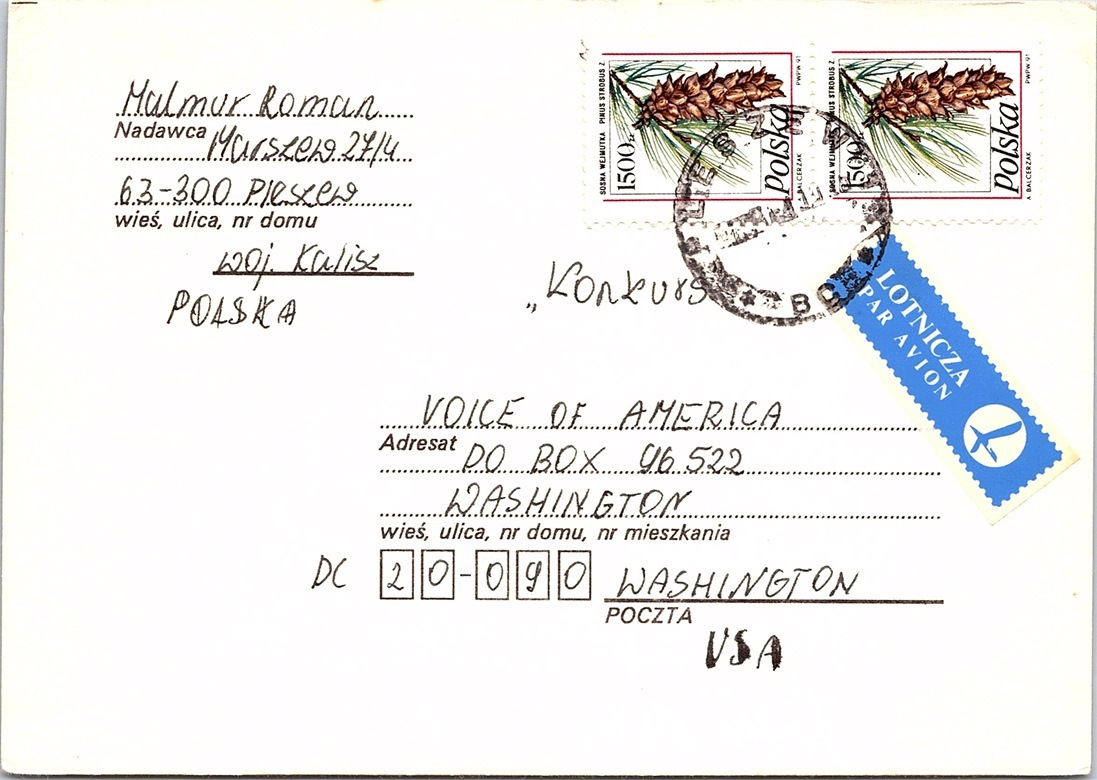 Malmur Roman
Nadawca
Marszew 27/4
63-300 Pleszew
wieś, ulica, nr domu
woj. Kalisz
POLSKA
SOSNA WEJMUTKA PINUS STROBUS Z.
1500 zł
Polska
PWPW 91
A. BALCERZAK
SOSNA WEJMUTKA PINUS STROBUS Z.
1500 zł
Polska
PWPW 91
A. BALCERZAK
PLESZEW
BC
„Konkurs
LOTNICZA
PAR AVION
VOICE OF AMERICA
Adresat
PO BOX 96522
WASHINGTON
wieś, ulica, nr domu, nr mieszkania
DC 20-090 WASHINGTON
POCZTA
USA